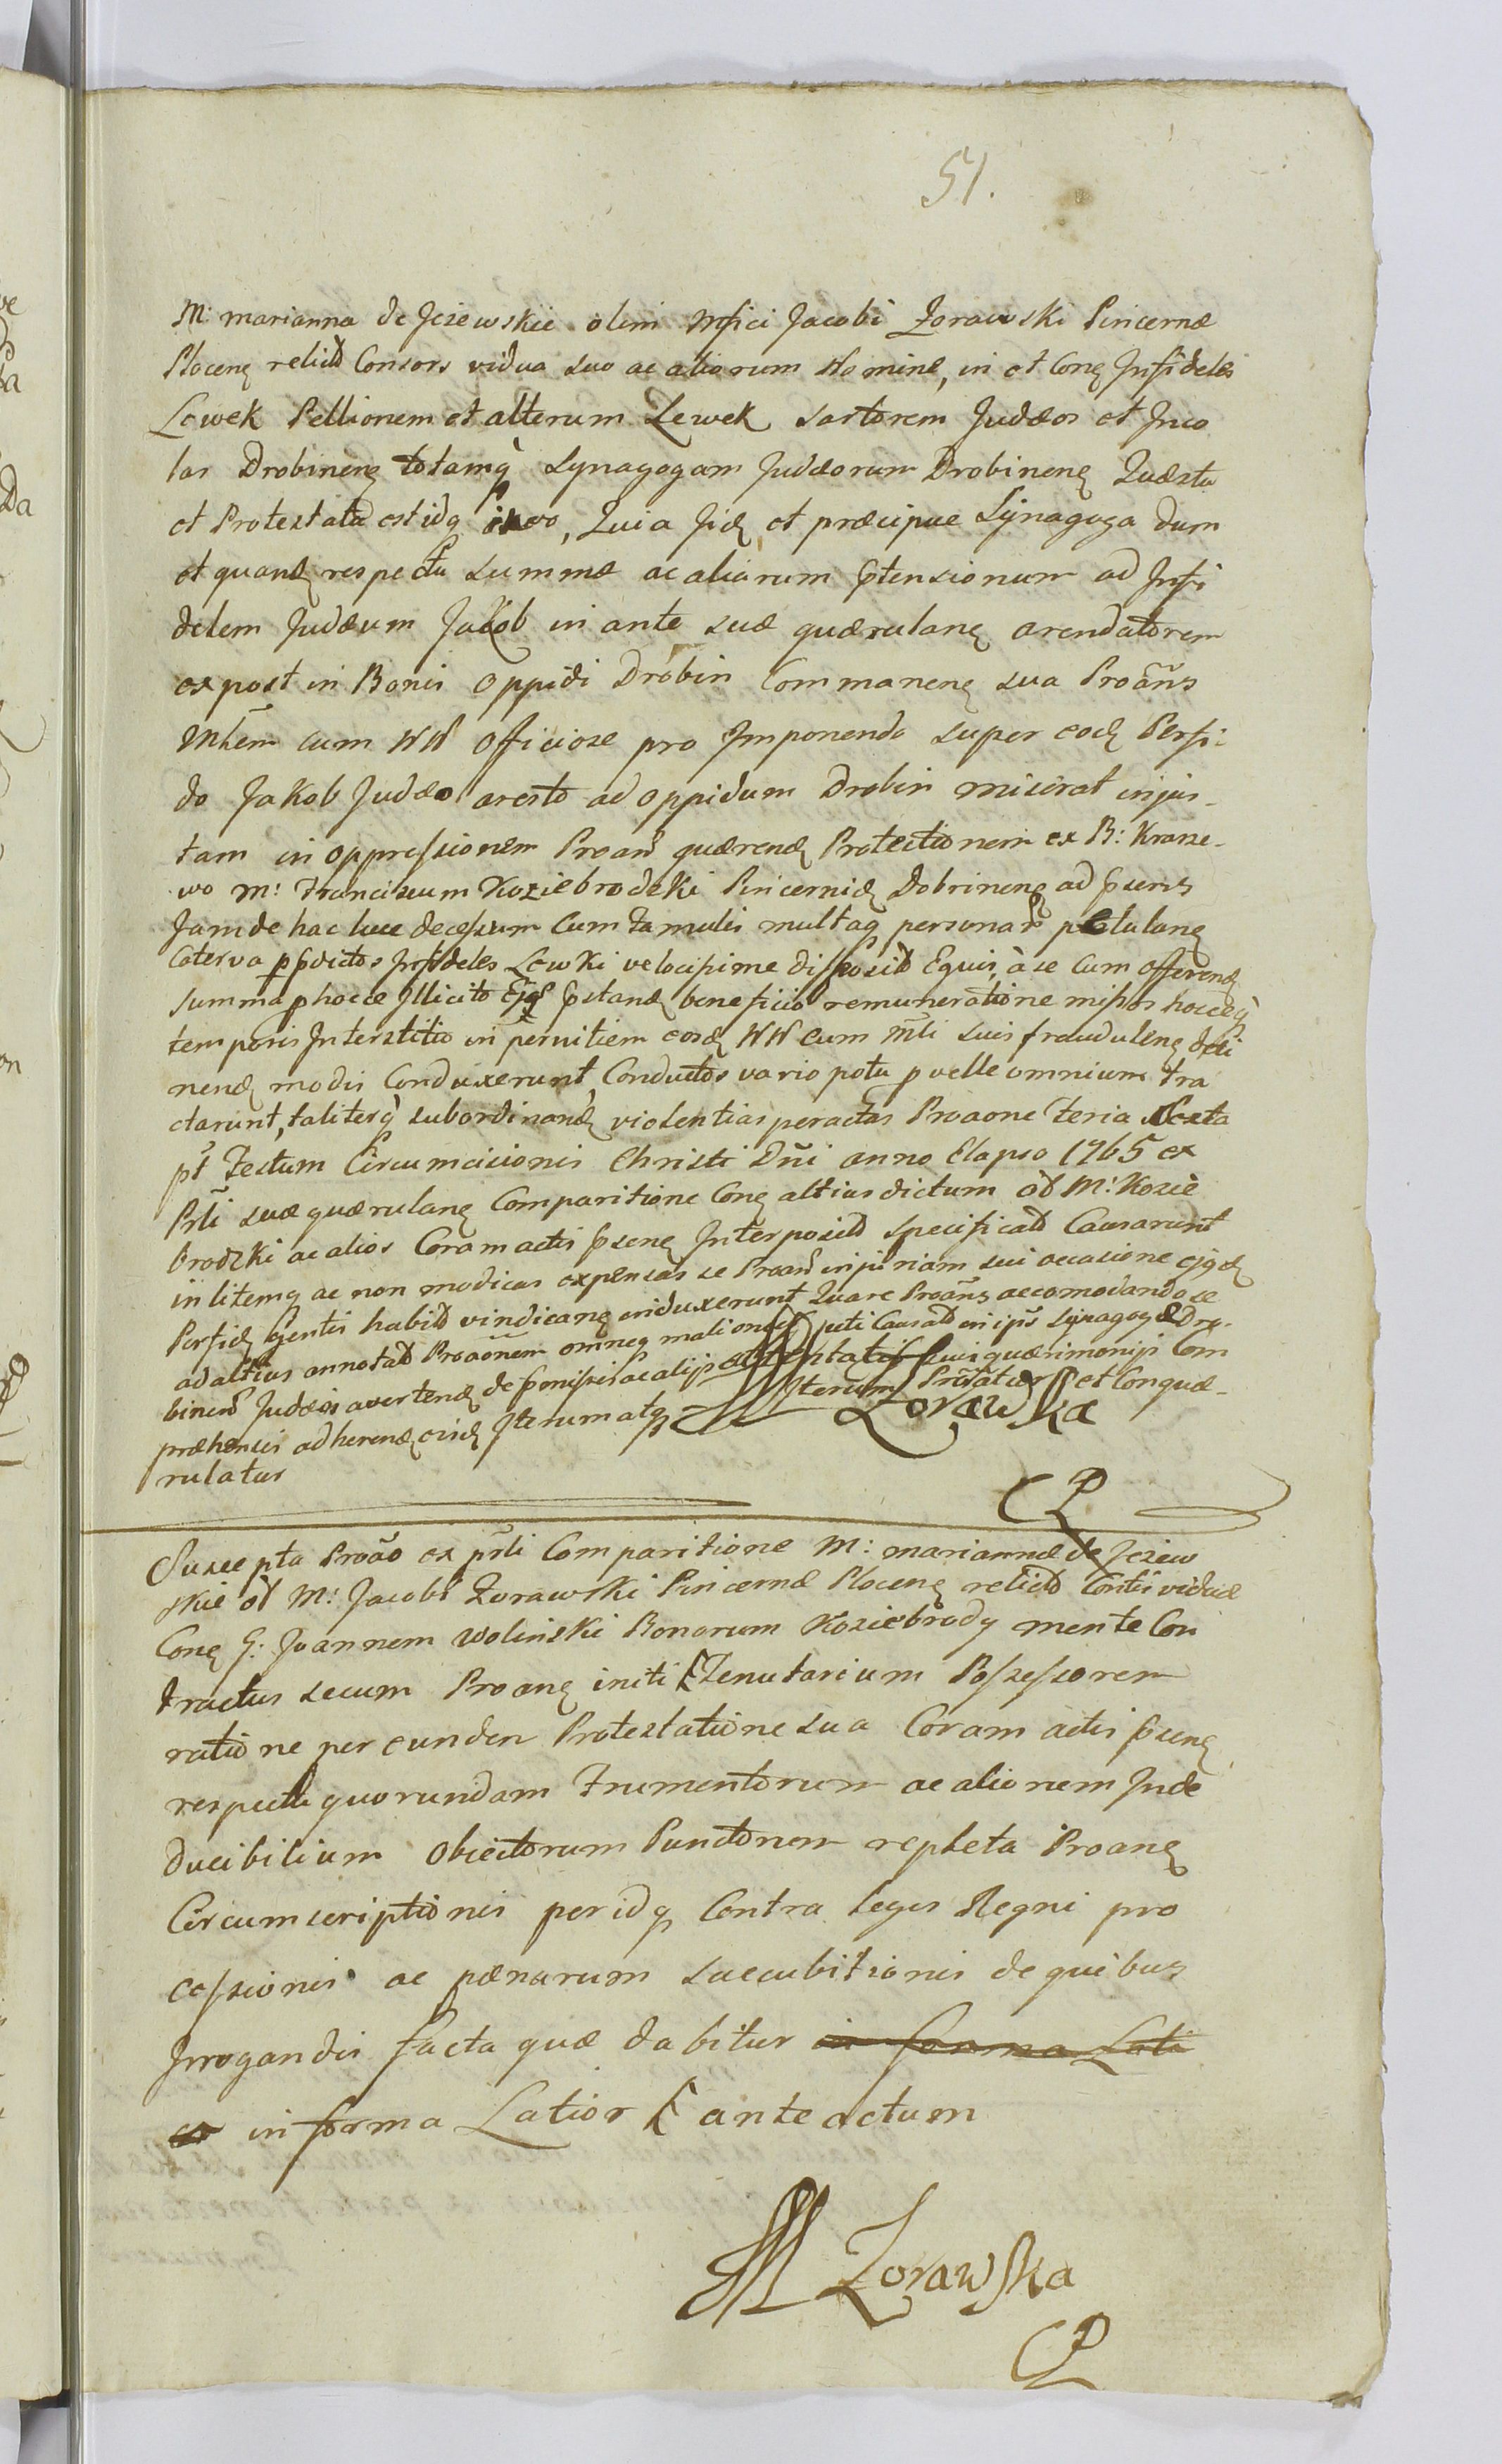 51.
M: marianna de Jezewskie olim Mfici Jacobi Zorawski Pincernæ
Ploceng relicta Consors vidua suo ac aliorum Nomine, in et Cong Infideles
Lewek Pellionem et alterum Lewek sartorem Judæos et Inco
las Drobineng totamq Synagogam Judæorum Drobineng Quæsta
et Protestata est idq, Quia Jid et præcipue Synagoga dum
et quand respectu summæ ac aliarum ptensionum ad Infi
delem Judæum Jakob in ante suæ quærulang arendatorem
ex post in Bonis Oppidi Drobin Commaneng sua Proãns
Mtem cum WW Officiose pro Imponendo super eod Perfi-
do Jakob Judæo aresto ad Oppidum Drobin miserat injus-
tam in oppressionem Proan quærend Protectionem ex B: Krasze-
wo M: Franciscum Koziebrodzki Pincernid Dobrineng ad psens
Jam de hac luce decessum Cum famulis multaq personar petulang
Caterva p pdictos Infideles Lewki velocissime disposit Equis, à se Cum offerend
summa p hocce Illicito Ejq pstand beneficio remuneratione missos hocceq
temporis Interstitio in pernitiem eosd WW cum Mli suis frauduleng deti
nend modis Conduxerunt, Conductos vario potu p velle omnium tra
ctarunt, taliterq subordinand violentias peractas Proaone feria sexta
pt Festum Circumcisionis Christi Dñi anno Elapso 1765 ex
Prli suæ quærulang Comparitione Cong altius dictum ol M: Kozie
brodzki ac alios Coram actis pseng Interposita specificat Causarunt
in litemq ac non modicas expensas se Proan injuriam sui occasione ejqd
Perfid Gentis habit vindicang induxerunt Quare Proãns accomodando se
ad altius annotat Proaõnem omneq mali onus uti Causat in ips Synagog Dro-
binen Judæos avertend de pmissis ac alijs suis quærimonijs Com
præhensis adherend eisd Iterum atq Iterum Prõtatur et Conquæ-
rulatur
Zorawska
CP
Suscepta Proão ex prli Comparitione M: mariannæ de Jezew
skie ol M: Jacobi Zorawski Pincernæ Ploceng relict Contis viduæ
Cong G: Joannem Wolinski Bonorum Koziebrody mente Con
tractus secum Proang initi Tenutarium Possessorem
ratione per eunden Protestatione sua Coram actis pseng
respectu quorundam Frumentorum ac aliorem Inde
ducibilium Obiectorum Punctorum repleta Proang
Circumscriptionis per idq Contra leges Regni pro
cessionis ac pænarum succubitionis de quibus
Irrogandis facta quæ dabitur in forma Lati
or in forma Latior ante actum
M Zorawska
CP